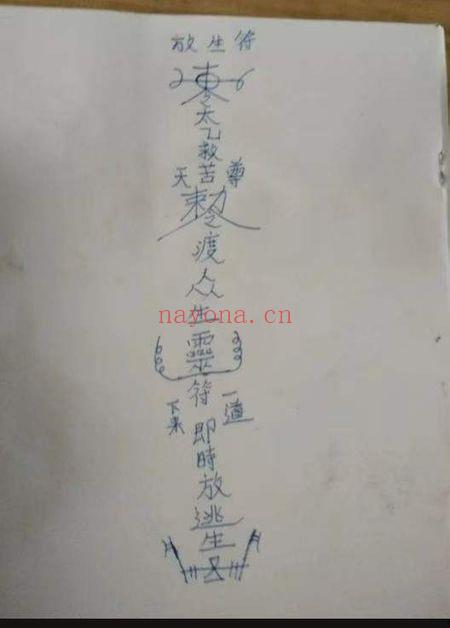 放生符
太乙救苦
天尊
敕令
渡众生靈符
一道
下来
即時放逃生
nayona.cn